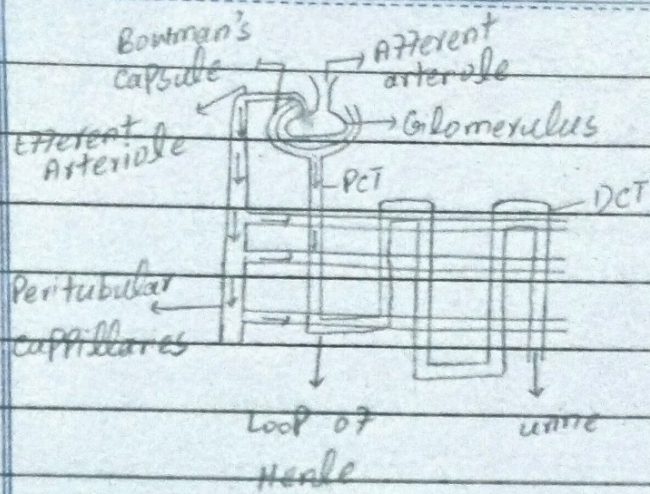 Bowman's
Capsule
Afferent
arteriole
Glomerulus
Efferent
Arteriole
PCT
DCT
Peritubular
Cappillaries
Loop of
Henle
urine